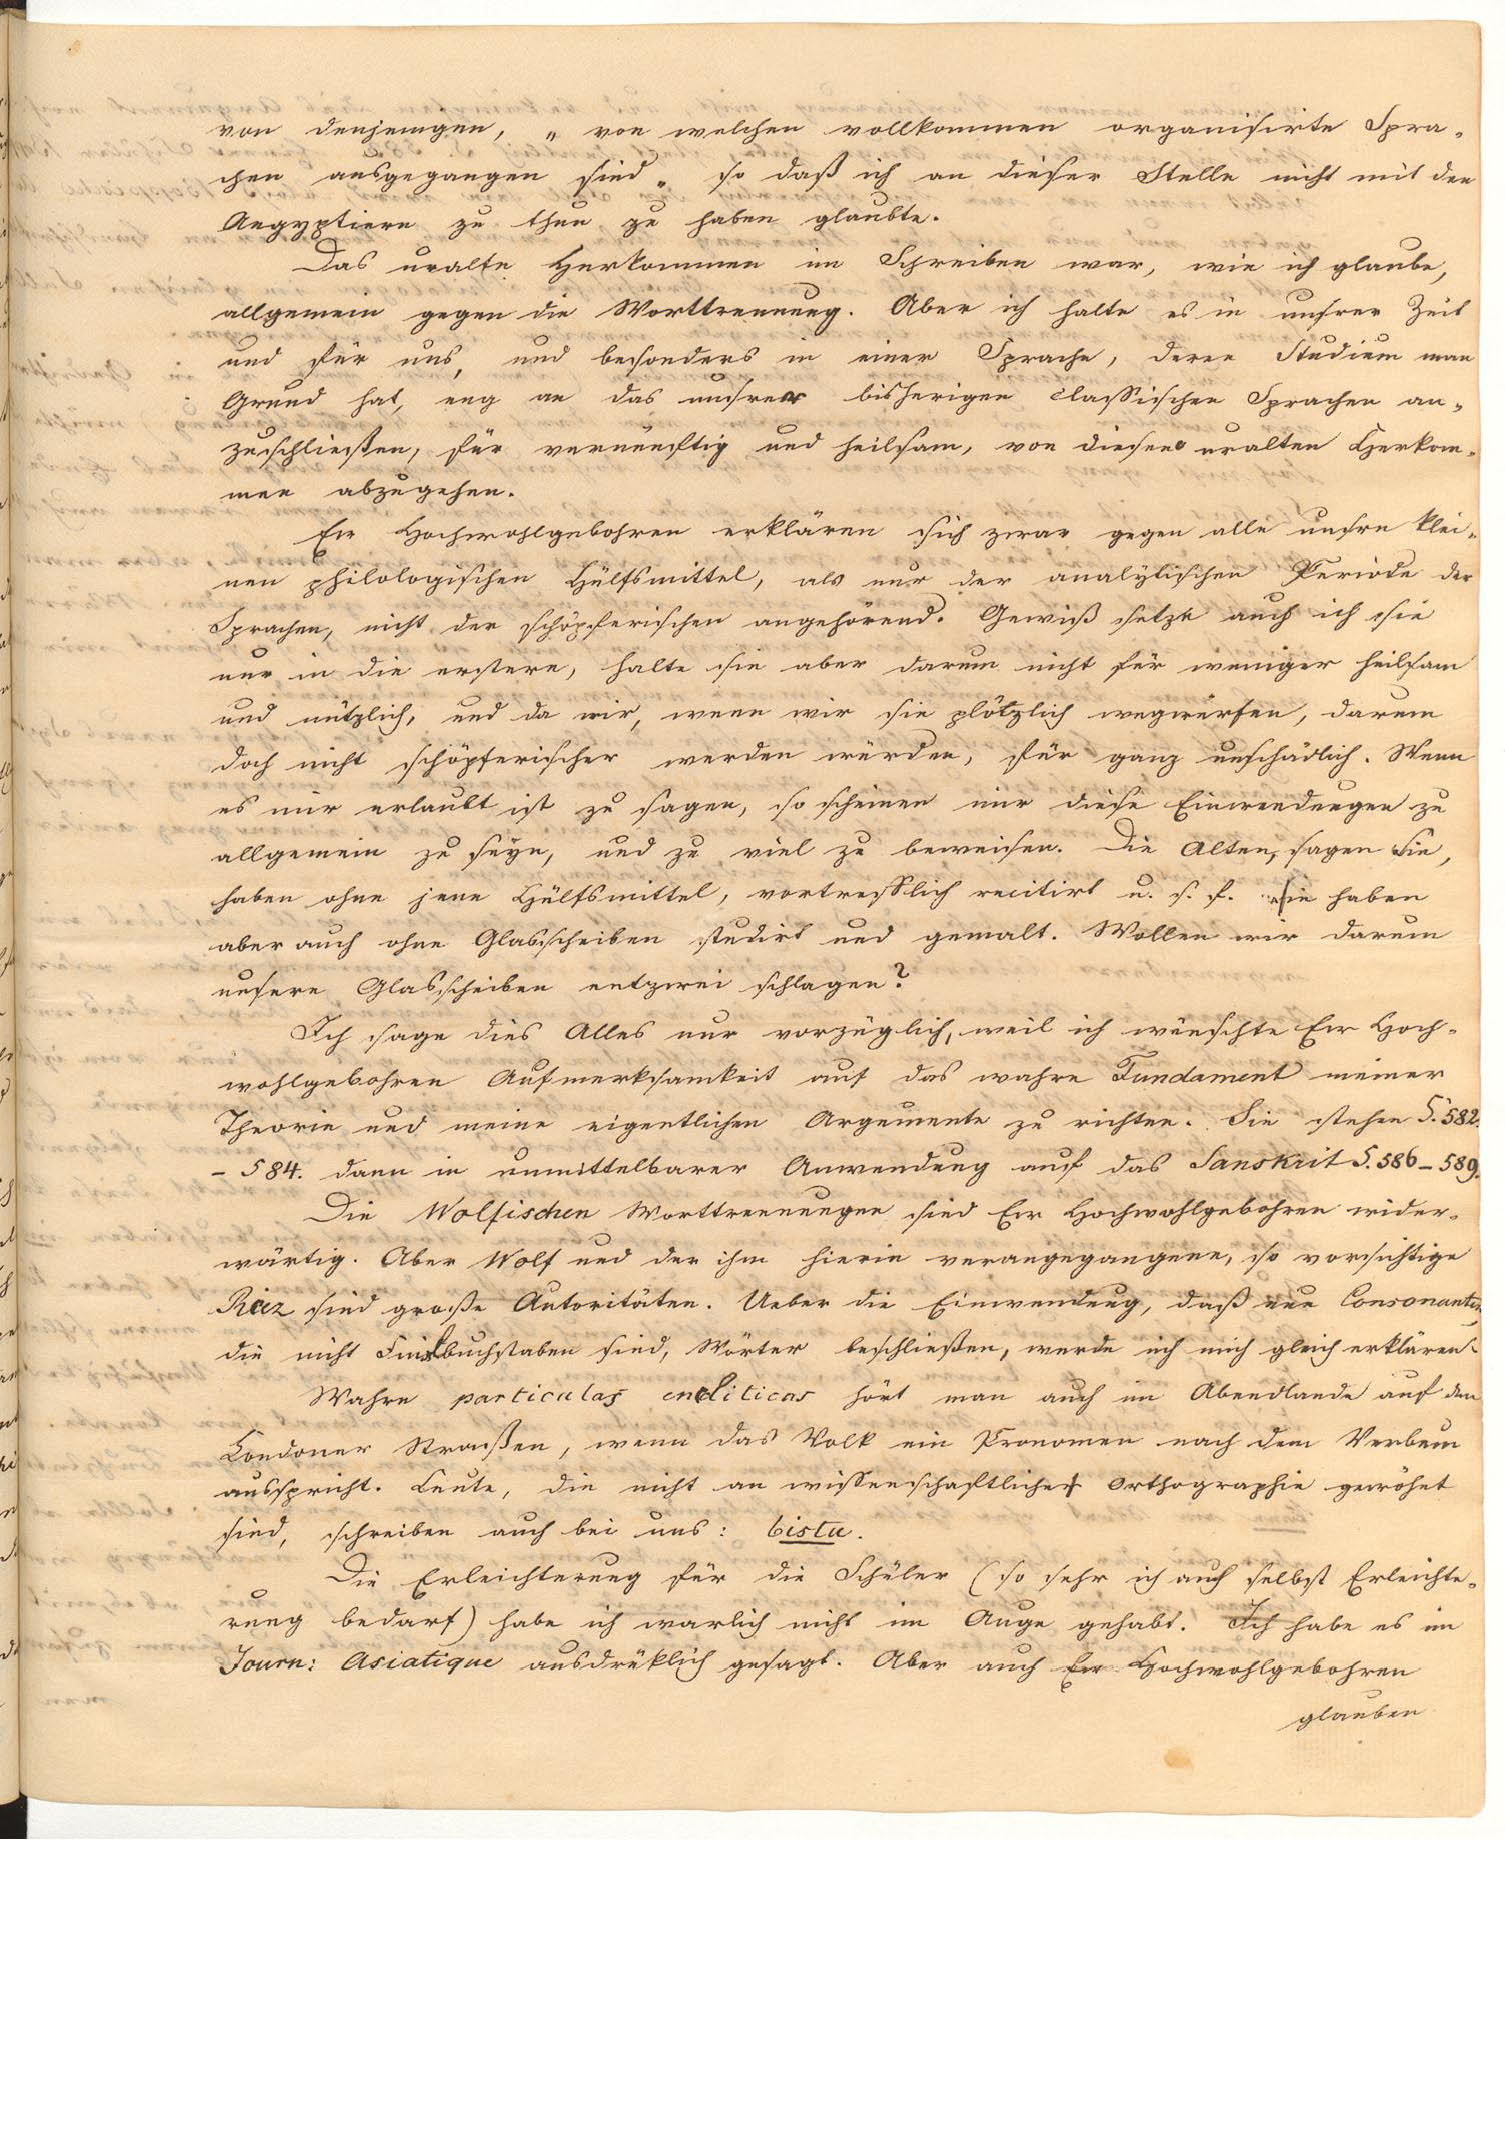 von denjenigen, „ von welchen vollkommen organisirte Spra-
chen ausgegangen sind„ so daß ich an dieser Stelle nicht mit den
Aegyptiern zu thun zu haben glaubte.
Das uralte Herkommen im Schreiben war, wie ich glaube,
allgemein gegen die Worttrennung. Aber ich halte es in unsrer Zeit
und für uns, und besonders in einer Sprache, deren Studium man
Grund hat, eng an das unsrer bisherigen classischen Sprachen an-
zuschließen, für vernünftig und heilsam, von diesem uralten Herkom-
men abzugehen.
Ew Hochwohlgebohren erklären sich zwar gegen alle unsre klei-
nen philologischen Hülfsmittel, als nur der analytischen Periode der
Sprachen, nicht der schöpferischen angehörend. Gewiß setze auch ich sie
nur in die erstere, halte sie aber darum nicht für weniger heilsam
und nützlich, und da wir, wenn wir sie plötzlich wegwürfen, darum
doch nicht schöpferischer werden würden, für ganz unschädlich. Wenn
es mir erlaubt ist zu sagen, so scheinen mir diese Einwendungen zu
allgemein zu seyn, und zu viel zu beweisen. Die Alten, sagen Sie,
haben ohne jene Hülfsmittel, vortrefflich recitirt u. s. f. sie haben
aber auch ohne Glasscheiben studirt und gemalt. Wollen wir darum
unsere Glasscheiben entzwei schlagen?
Ich sage dies Alles nur vorzüglich, weil ich wünschte Ew Hoch-
wohlgebohren Aufmerksamkeit auf das wahre Fundament meiner
Theorie und meine eigentlichen Argumente zu richten. Sie stehen S. 582.
– 584. dann in unmittelbarer Anwendung auf das Sanskrit S. 586–589.
Die Wolfischen Worttrennungen sind Ew Hochwohlgebohren wider-
wärtig. Aber Wolf und der ihm hierin verangegangene, so vorsichtige
Reiz sind große Autoritäten. Ueber die Einwendung, daß nun Consonanten
die nicht Finalbuchstaben sind, Wörter beschließen, werde ich mich gleich erklären.
Wahre particulas encliticas hört man auch im Abendlande auf den
Londoner Straßen, wenn das Volk ein Pronomen nach dem Verbum
ausspricht. Leute, die nicht an wissenschaftliche Orthographie gewöhnt
sind, schreiben auch bei uns: bistu.
Die Erleichterung für die Schüler (so sehr ich auch selbst Erleichte-
rung bedarf) habe ich warlich nicht im Auge gehabt. Ich habe es im
Journ: Asiatique ausdrüklich gesagt. Aber auch Ew Hochwohlgebohren
glauben